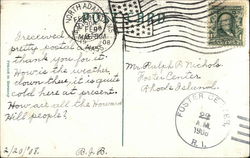 POST CARD
NORTH ADAMS
FEB
MASS.
1908
I received your
pretty postal and
thank you for it.
How is the weather
down thus, it is quite
cold here at present.
How are all the Howard
Hill people?
2/20/08. B.J.B.
Mr. Ralph P. Nichols
Foster Center
Rhode Island.
FOSTER CENTER
22
A.M.
1908
R.I.